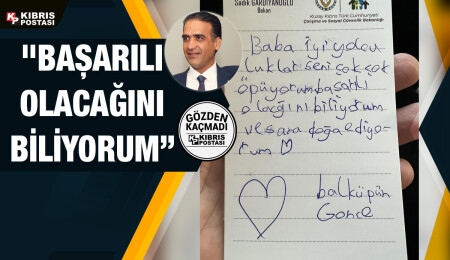 KIBRIS
POSTASI
"BAŞARILI
OLACAĞINI
BİLİYORUM”
GÖZDEN
KAÇMADI
KIBRIS
POSTASI
Sadık GARDİYANOĞLU
Bakan
Kuzey Kıbrıs Türk Cumhuriyeti
Çalışma ve Sosyal Güvenlik Bakanlığı
Baba iyi yolcu
luklar seni çok çok
öpüyorum başarılı
olacağını biliyorum
ve sana doğa ediyo
rum
balküpün
Gonce